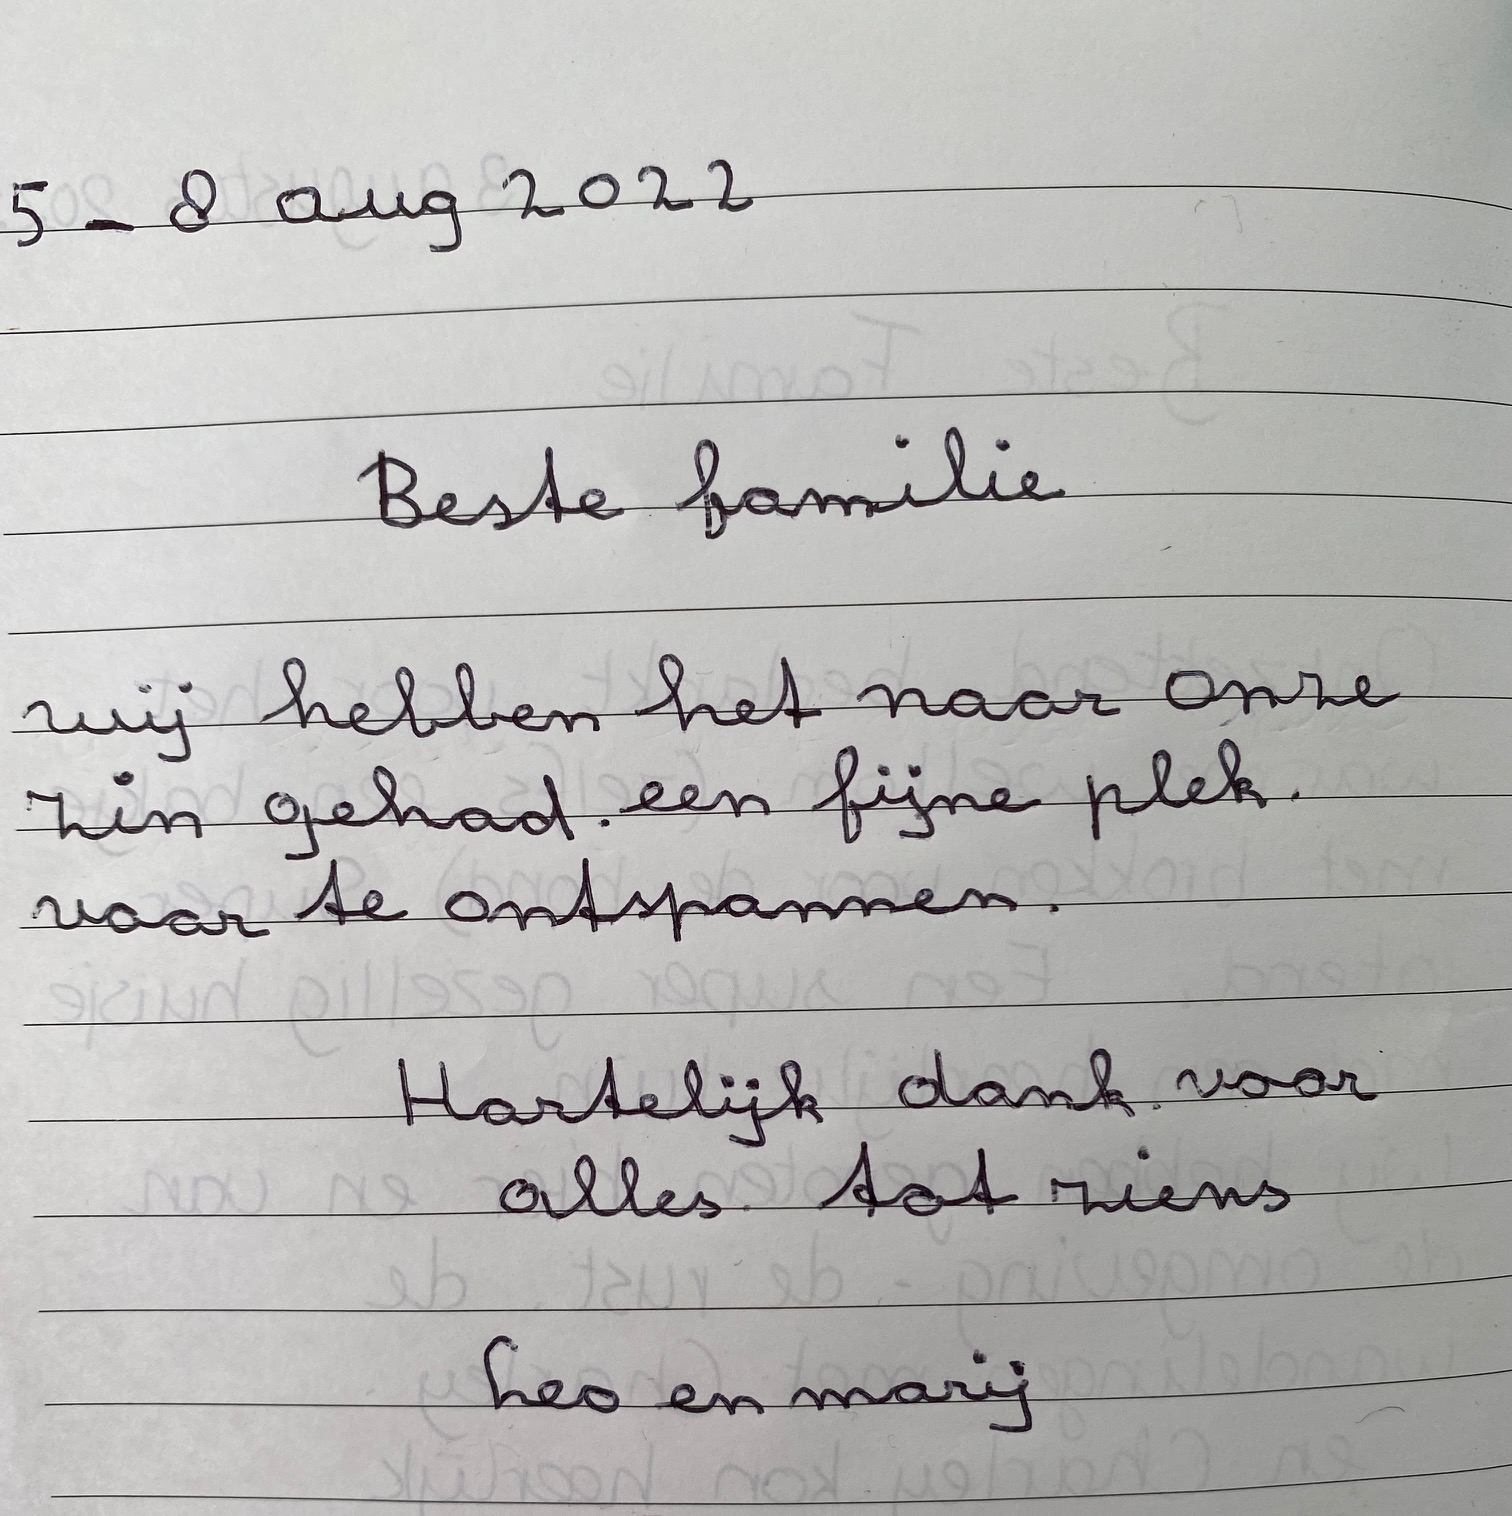 5 - 8 aug 2022
Beste familie
wij hebben het naar onze
zin gehad. een fijne plek.
voor te ontspannen.
Hartelijk dank. voor
alles. tot ziens
Leo en marij